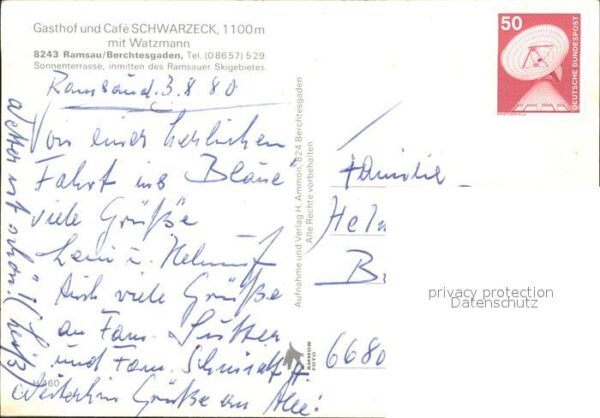 Gasthof und Café SCHWARZECK, 1100m
mit Watzmann
8243 Ramsau/Berchtesgaden, Tel. (08657) 529
Sonnenterrasse, inmitten des Ramsauer Skigebietes
3.8.80
Von einer herrlichen
Fahrt ins "Blaue"
viele Grüße
u. Helmut
Auch viele Grüße
an Fam. Sutter
und Fam. Schmidt
Weiterhin Grüße an Alle!
Wetter ist schön! (heiß)
Aufnahme und Verlag H. Ammon, 824 Berchtesgaden
Alle Rechte vorbehalten
AMMON
FOTO
50
DEUTSCHE BUNDESPOST
Familie
Helm
B
6680
privacy protection
Datenschutz